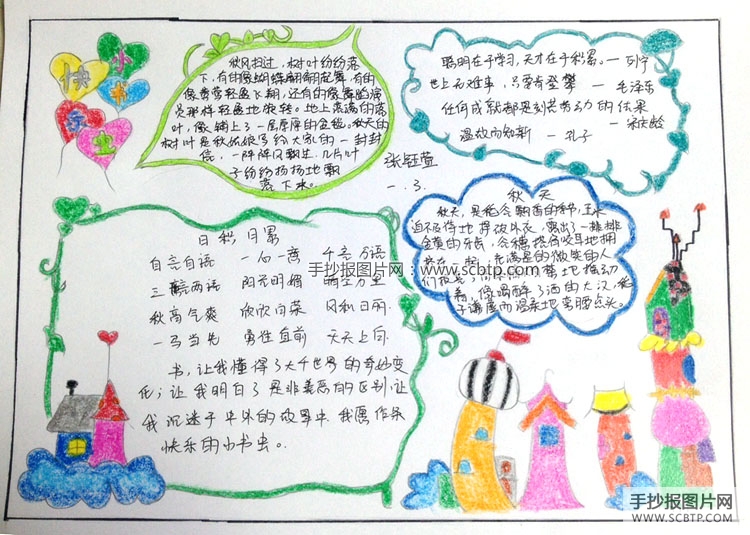 快
小
书
乐
虫
秋风扫过，树叶纷纷落
下，有的像蝴蝶翩翩起舞，有的
像黄莺轻盈飞翔，还有的像舞蹈演
员那样轻盈地旋转。地上落满的落
叶，像铺上了一层厚厚的金毯。秋天的
树叶是秋姑娘写给大家的一封封
信，一阵阵风飘过，几片叶
子纷纷扬扬地飘
落下来。
聪明在于学习，天才在于积累。— 列宁
世上无难事，只要肯登攀 — 毛泽东
任何成就都是刻苦劳动的结果
— 宋庆龄
温故而知新 — 孔子
张钰萱
一.3.
日积月累
自言自语 一心一意 千言万语
三言两语 阳光明媚 晴空万里
秋高气爽 欣欣向荣 风和日丽
一马当先 勇往直前 天天上向
书，让我懂得了大千世界的奇妙变
化；让我明白了是非善恶的区别；让
我沉迷于中外的故事中。我愿作条
快乐的小书虫。
秋天
秋天，是稻谷飘香的季节，玉米
迫不及待地掙破外衣，露出了一排排
金黄的牙齿，谷穗
满是的微笑的人
们
着，像喝醉了酒的大汉
子谦虚而温柔地弯腰点头。
手抄报图片网：www.scbtp.com
手抄报图片网
WWW.SCBTP.COM